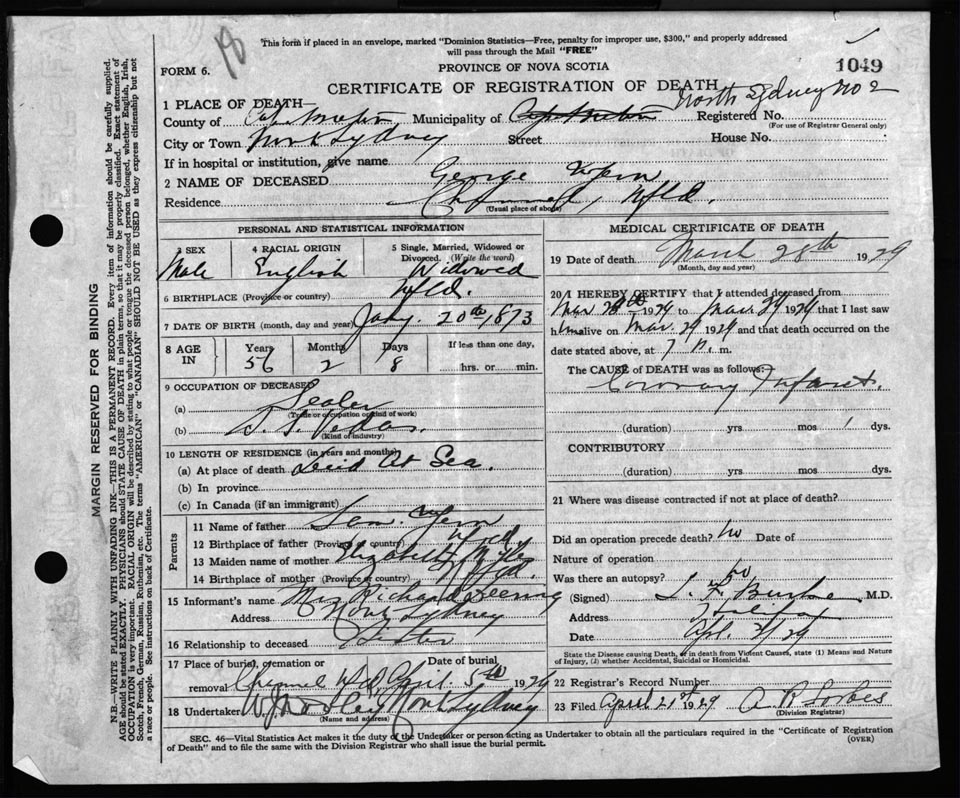 18
This form if placed in an envelope, marked "Dominion Statistics—Free, penalty for improper use, $300," and properly addressed
will pass through the Mail "FREE"
FORM 6.
PROVINCE OF NOVA SCOTIA
1049
CERTIFICATE OF REGISTRATION OF DEATH
1 PLACE OF DEATH—
North Sydney No 2
County of Cape Breton Municipality of Cape Breton Registered No.
(For use of Registrar General only)
City or Town North Sydney Street House No.
If in hospital or institution, give name
2 NAME OF DECEASED George
Residence Channel, Nfld.
(Usual place of abode)
PERSONAL AND STATISTICAL INFORMATION
3 SEX 4 RACIAL ORIGIN 5 Single, Married, Widowed or Divorced. (Write the word)
Male English Widowed
6 BIRTHPLACE (Province or country) Nfld.
7 DATE OF BIRTH (month, day and year) Jany. 20th 1873
8 AGE IN Years Months Days If less than one day,
56 2 8 hrs. or min.
9 OCCUPATION OF DECEASED
(a) Sealer
(Trade or occupation or kind of work)
(b) S. S.
(Kind of industry)
10 LENGTH OF RESIDENCE (in years and months)
(a) At place of death Died At Sea.
(b) In province
(c) In Canada (if an immigrant)
Parents
11 Name of father
12 Birthplace of father (Province or country) Nfld
13 Maiden name of mother Elizabeth
14 Birthplace of mother (Province or country) Nfld.
15 Informant's name Mrs Richard
Address North Sydney
16 Relationship to deceased Sister
17 Place of burial, cremation or Date of burial
removal Channel Nfld April 5th 1929
18 Undertaker W. J. North Sydney
(Name and address)
MEDICAL CERTIFICATE OF DEATH
19 Date of death March 28th 1929
(Month, day and year)
20 I HEREBY CERTIFY that I attended deceased from
Mar 28th 1929 to Mar 29 1929 that I last saw
him alive on Mar. 29 1929 and that death occurred on
date stated above, at 7 P. m.
The CAUSE of DEATH was as follows:—
Coronary Infarct.
(duration) yrs mos 1 dys.
CONTRIBUTORY
(duration) yrs mos dys.
21 Where was disease contracted if not at place of death?
Did an operation precede death? No Date of
Nature of operation
Was there an autopsy? no
(Signed) Burke M.D.
Address Halifax
Date Apl. 2/29
State the Disease causing Death, or in death from Violent Causes, state (1) Means and Nature
of Injury, (2) whether Accidental, Suicidal or Homicidal.
22 Registrar's Record Number
23 Filed April 21st 1929 A R Forbes
(Division Registrar)
SEC. 46—Vital Statistics Act makes it the duty of the Undertaker or person acting as Undertaker to obtain all the particulars required in the "Certificate of Registration
of Death" and to file the same with the Division Registrar who shall issue the burial permit.
(OVER)
MARGIN RESERVED FOR BINDING
N.B.—WRITE PLAINLY WITH UNFADING INK—THIS IS A PERMANENT RECORD. Every item of information should be carefully supplied.
AGE should be stated EXACTLY. PHYSICIANS should STATE CAUSE OF DEATH in plain terms, so that it may be properly classified. Exact statement of
OCCUPATION is very important. RACIAL ORIGIN will be described by stating to what people or tongue the deceased person belonged, whether English, Irish,
Scotch, French, German, Russian, Ruthenian, etc. The terms "AMERICAN" or "CANADIAN" SHOULD NOT BE USED as they express citizenship but not
a race or people. See instructions on back of Certificate.